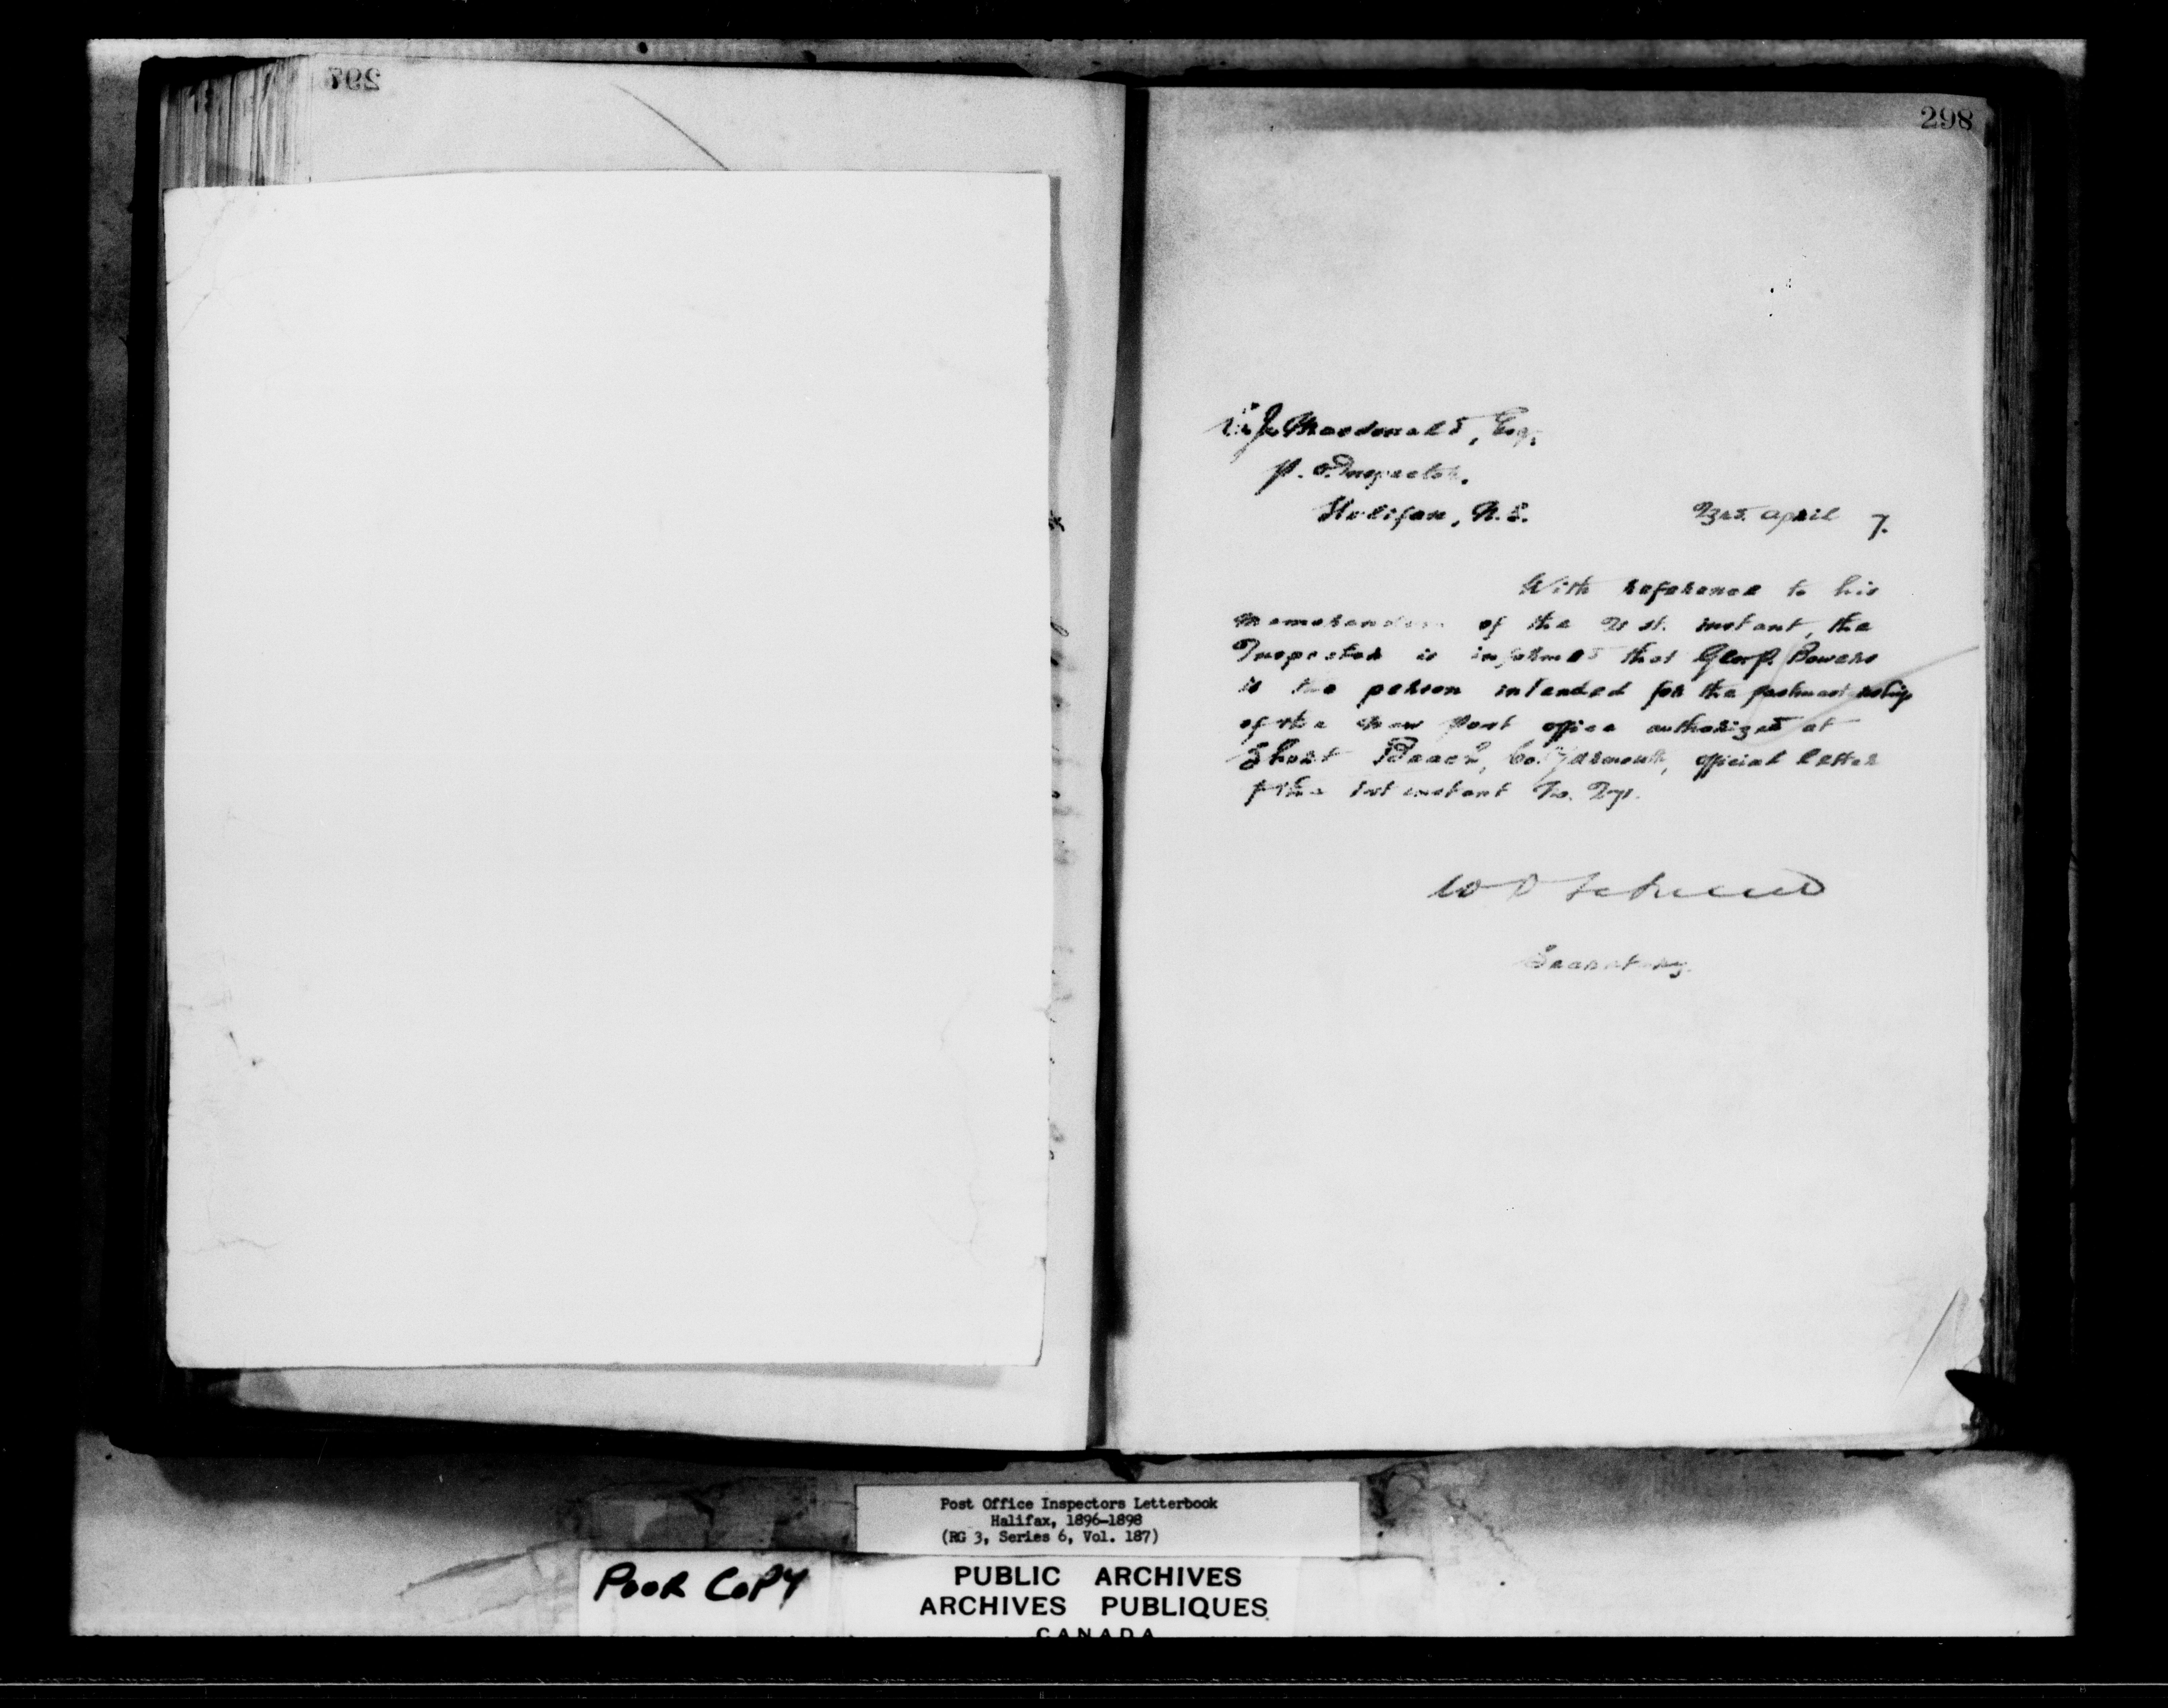 297
298
Macdonald, Esq.,
P. O. Inspector,
Halifax, N. S.
23rd. April 7.
With reference to his
memorandum of the 21st. instant, the
Inspector is informed that Geo. P. Bowers
is the person intended for the postmastership
of the new Post office authorized at
Short Beach, Co. Yarmouth, official letter
of the 1st instant No.
Secretary.
Post Office Inspectors Letterbook
Halifax, 1896-1898
(RG 3, Series 6, Vol. 187)
POOR COPY
PUBLIC ARCHIVES
ARCHIVES PUBLIQUES
CANADA